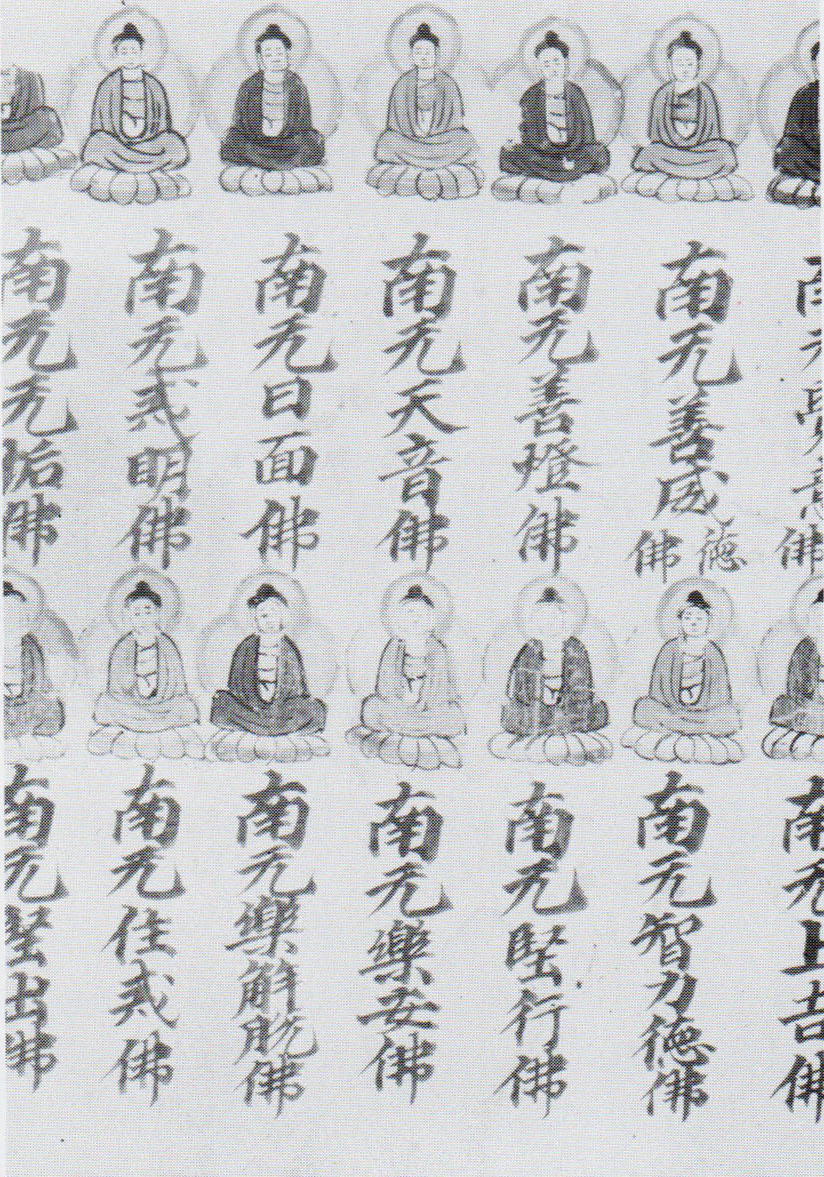 南无覺意佛
南无善威德佛
南无善燈佛
南无天音佛
南无日面佛
南无戒明佛
南无无垢佛
南无上吉佛
南无智力德佛
南无堅行佛
南无樂安佛
南无樂解脱佛
南无住戒佛
南无堅出佛